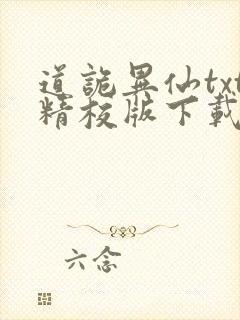 道詭異仙txt
精校版下載
六念